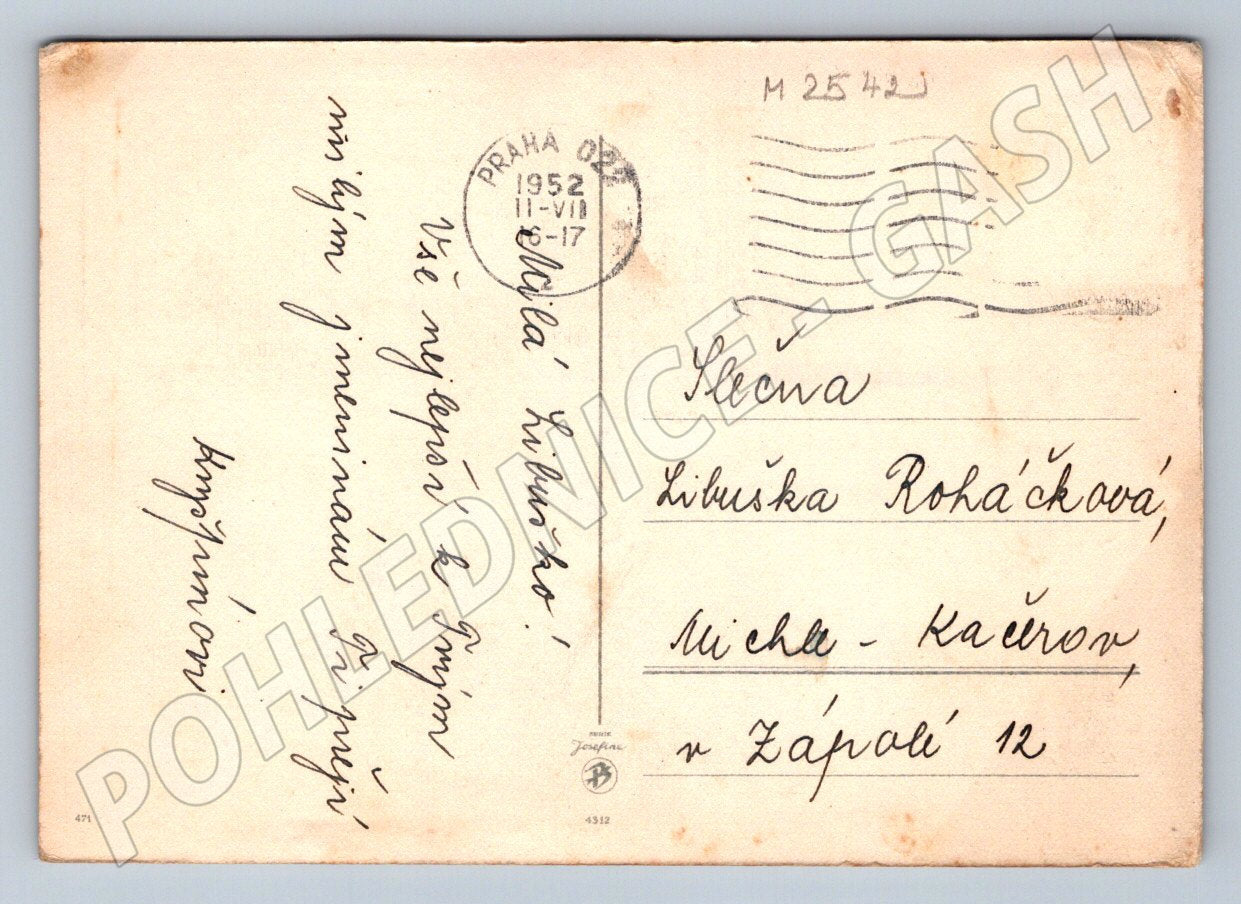 M 2542
PRAHA 022
1952
11-VII
6-17
Milá Libuško!
Vše nejlepší k Tvým
milým jmeninám Ti přejí
Slečna
Libuška Roháčková,
Michle - Kačerov,
v Zápolí 12
Josefine
4312
471
POHLEDNICE - GASH